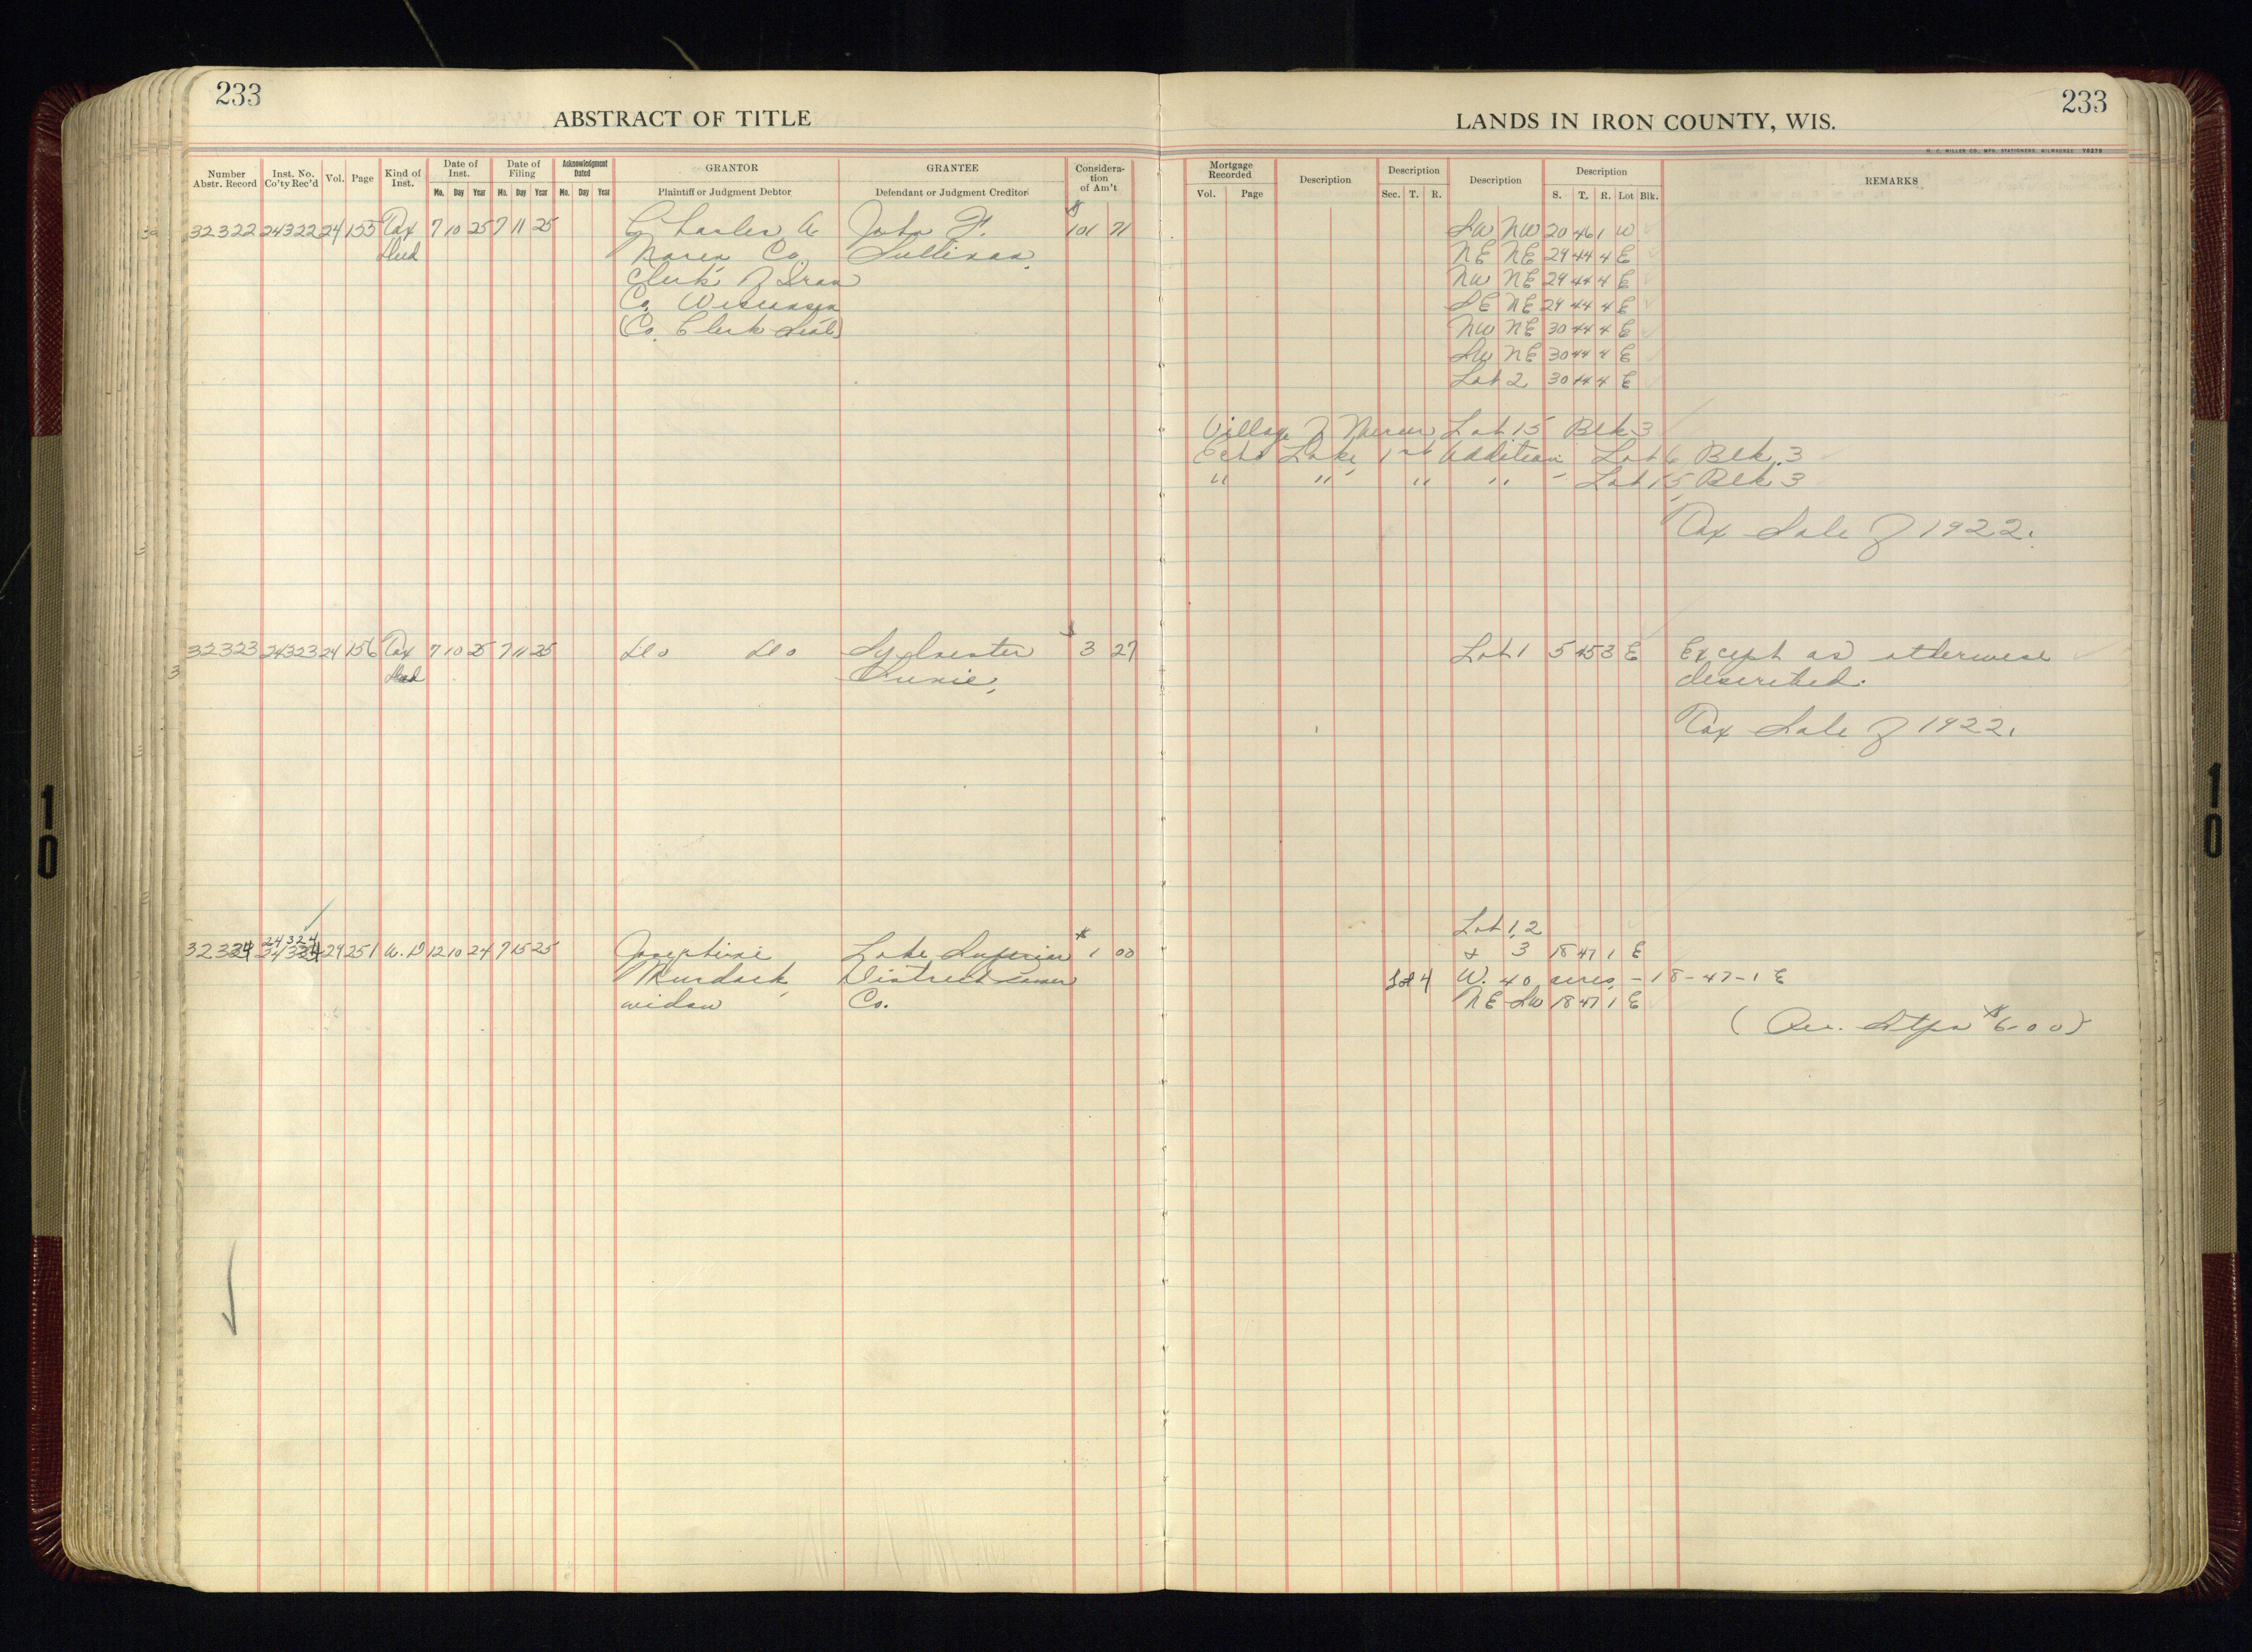 233
ABSTRACT OF TITLE
LANDS IN IRON COUNTY, WIS.
233
H. C. MILLER CO. MFG. STATIONERS, MILWAUKEE 76279
Number Abstr. Record
Inst. No. Co'ty Rec'd
Vol.
Page
Kind of Inst.
Date of Inst.
Mo. Day Year
Date of Filing
Mo. Day Year
Acknowledgment Dated
Mo. Day Year
GRANTOR
Plaintiff or Judgment Debtor
GRANTEE
Defendant or Judgment Creditor
Considera-tion of Am't
Mortgage Recorded
Vol. Page
Description
Description
Sec. T. R.
Description
Description
S. T. R. Lot Blk.
REMARKS
32322 24322 24 155 Tax 7 10 25 7 11 25 Charles A. John F. $101 71 SW NW 20 46 1 W
Deed Co. Sullivan. NE NE 29 44 4 E
Clerk of Iron NW NE 29 44 4 E
Co. Wisconsin SE NE 29 44 4 E
(Co. Clerk Seal) NW NE 30 44 4 E
SW NE 30 44 4 E
Lot 2 30 44 4 E
Village of Mercer Lot 15 Blk 3
Echo Lake, 1st Addition Lot 6 Blk. 3
" " " " - Lot 15, Blk. 3
Tax Sale of 1922.
32323 24323 24 156 Tax 7 10 25 7 11 25 Do Do Sylvester $3 27 Lot 1 5 45 3 E Except as otherwise
Deed described.
Tax Sale of 1922.
24324
32324 29 251 W. D 12 10 24 7 15 25 Josephine Lake Superior $1 00 Lot 1, 2
& 3 18 47 1 E
Murdock, District Power Lot 4 W. 40 acres, - 18-47-1 E
widow Co. NE SW 18 47 1 E
(Rev. Stps $6.00)
10
10